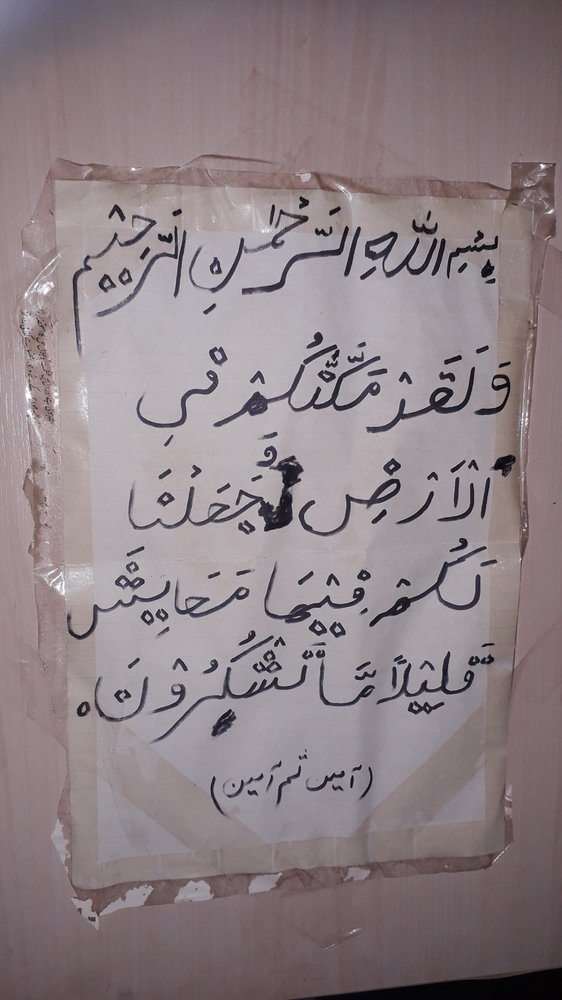 بِسْمِ اللّٰهِ الرَّحْمٰنِ الرَّحِيْمِ
وَلَقَدْ مَكَّنّٰكُمْ فِي
الْاَرْضِ وَجَعَلْنَا
لَكُمْ فِيْهَا مَعَايِشَ
قَلِيْلًا مَّا تَشْكُرُوْنَ ٥
(آمين ثم آمين)